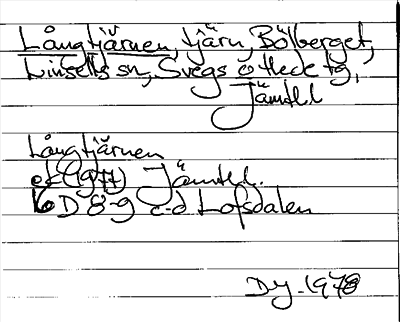 Långtjärnen, tjärn, Bölberget,
Linsells sn, Svegs o Hede tg,
Jämtl
Långtjärnen
ek (1977) Jämtl.
16 D 8-9 c-d Lofsdalen
Dy. 1978